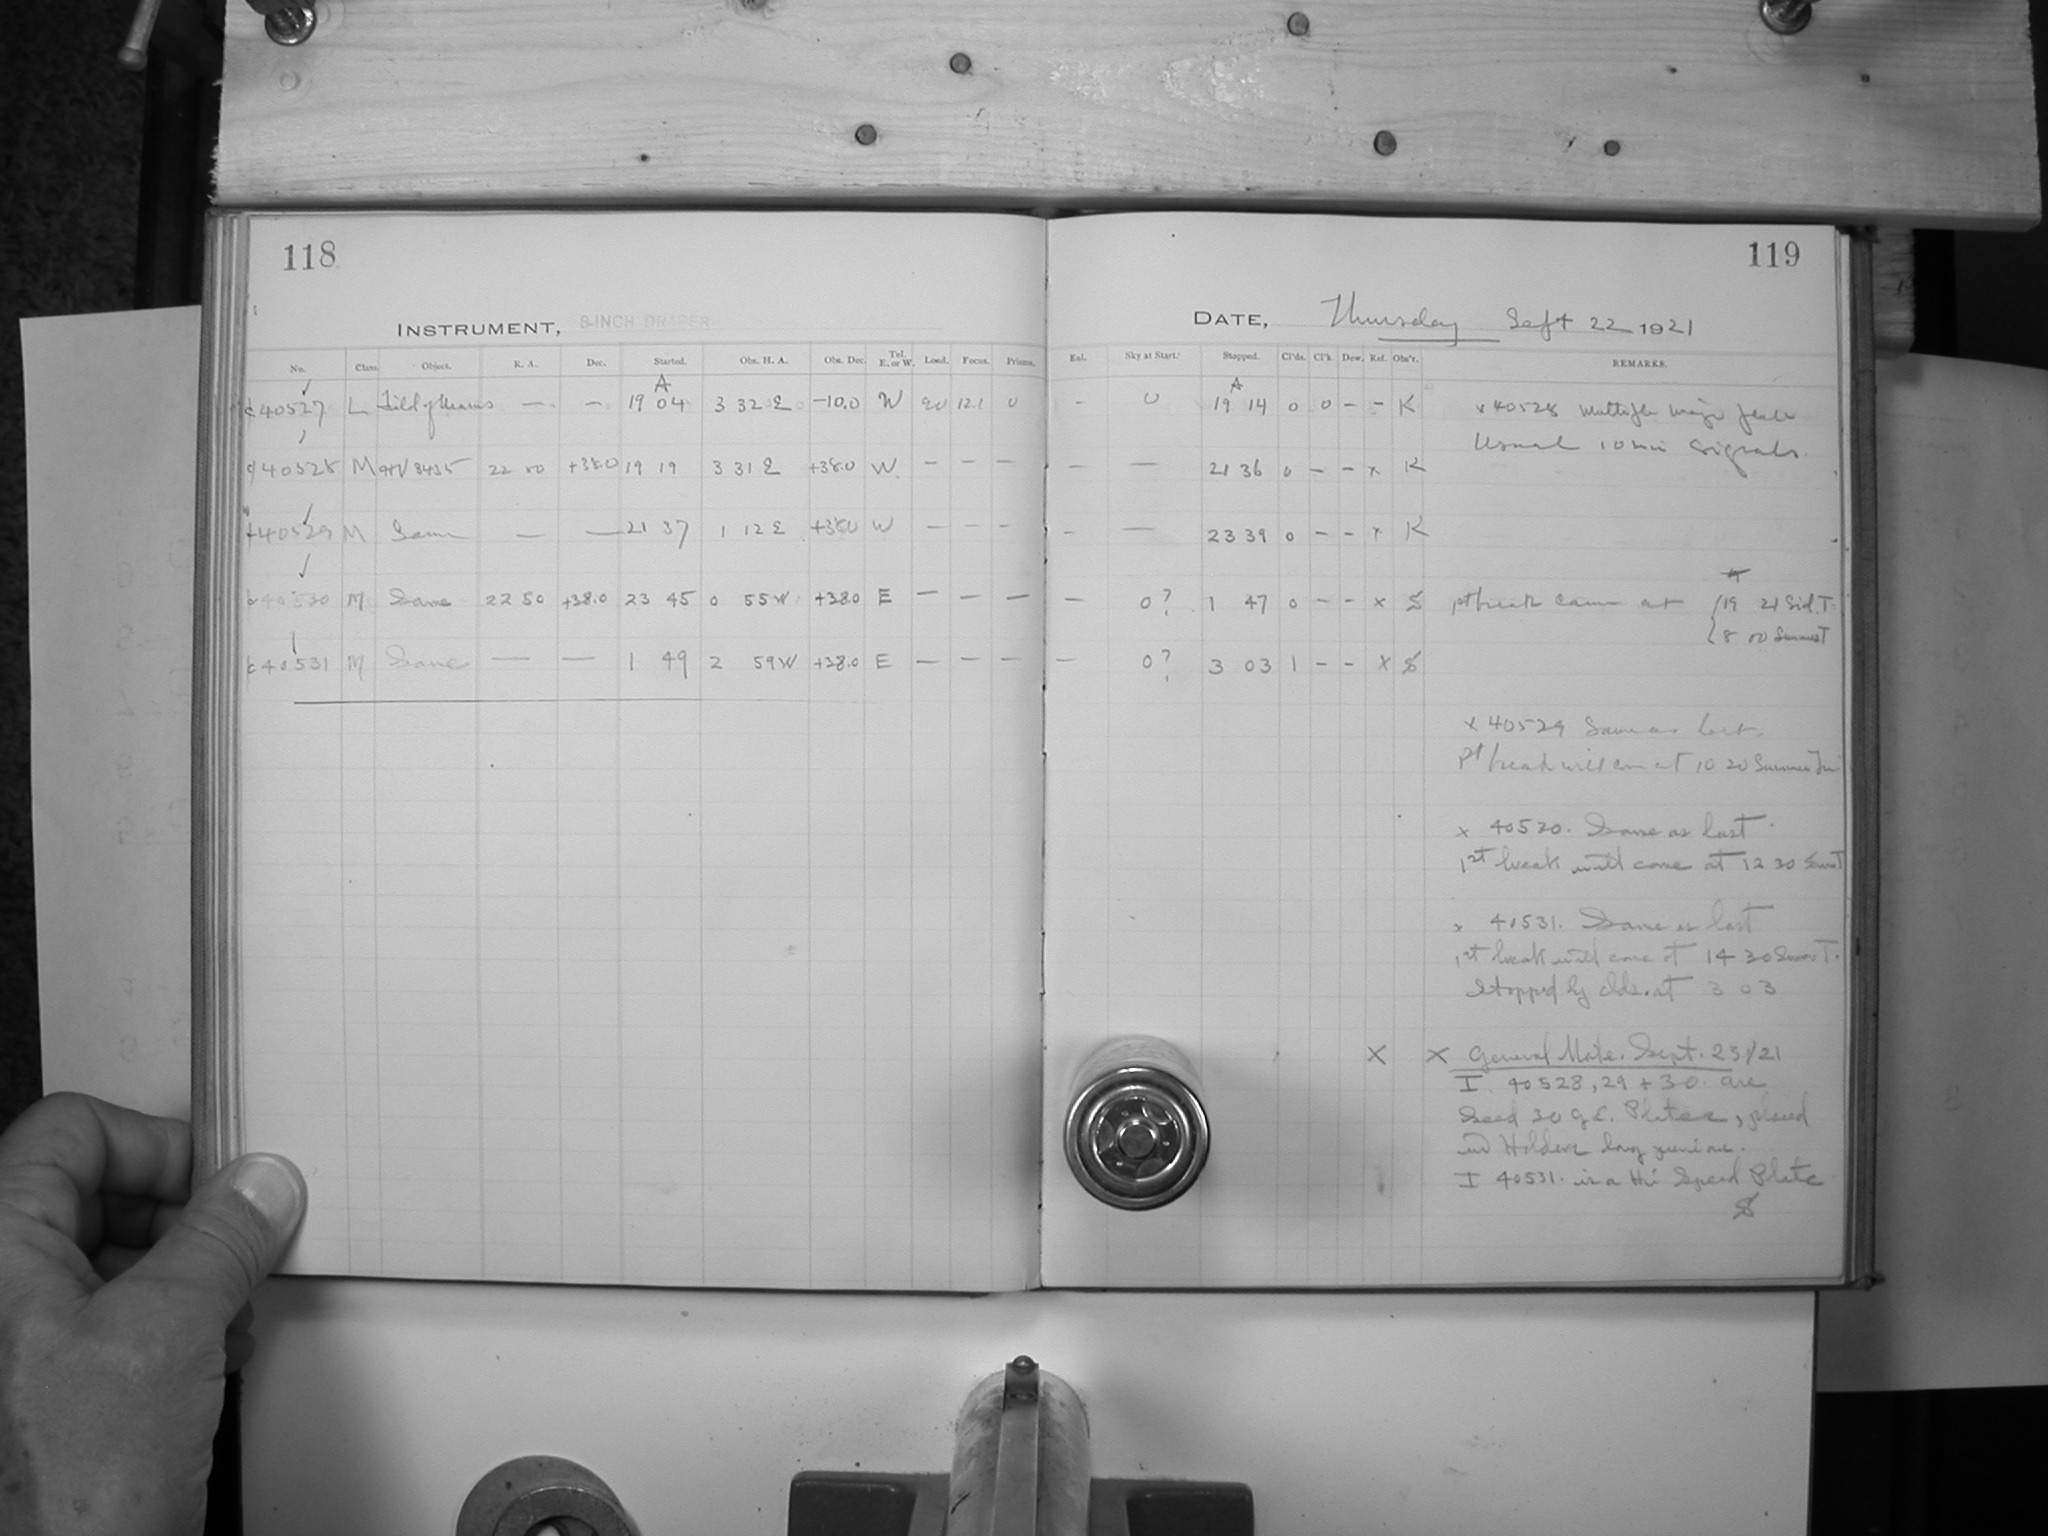 118
INSTRUMENT, 8-INCH DRAPER
No. Class. Object. R. A. Dec. Started. Obs. H. A. Obs. Dec. Tel. E. or W. Load. Focus. Prisms.
A
40527 L — — 19 04 3 32 E -10.0 W 12.1 0
40528 M 22 50 +38.0 19 19 3 31 E +38.0 W — — —
40529 M Same — — 21 37 1 12 E +38.0 W — — —
40530 M Same 22 50 +38.0 23 45 0 55 W +38.0 E — — —
40531 M Same — — 1 49 2 59 W +38.0 E — — —
119
DATE, Thursday Sept 22 1921
Enl. Sky at Start. Stopped. Cl'ds. Cl'k. Dew. Ref. Obs'r. REMARKS.
A
- 0 19 14 0 0 - - K x 40528 multiple
Usual 10 min signals.
— — 21 36 0 - - x K
- — 23 39 0 - - x K
— 0? 1 47 0 - - x S 1st break came at { 19 21 Sid. T.
8 00 Summer T
— 0? 3 03 1 - - x S
x 40529 Same as last.
1st break will come at 10 20 Summer
x 40530. Same as last.
1st break will come at 12 30
x 40531. Same as last
1st break will come at 14 30
Stopped by clds. at 3 03
X X General Note. Sept. 23/21
I 40528, 29 + 30 are
Seed 30 Plates, placed
in Holders
I 40531. is a Hi Speed Plate
S